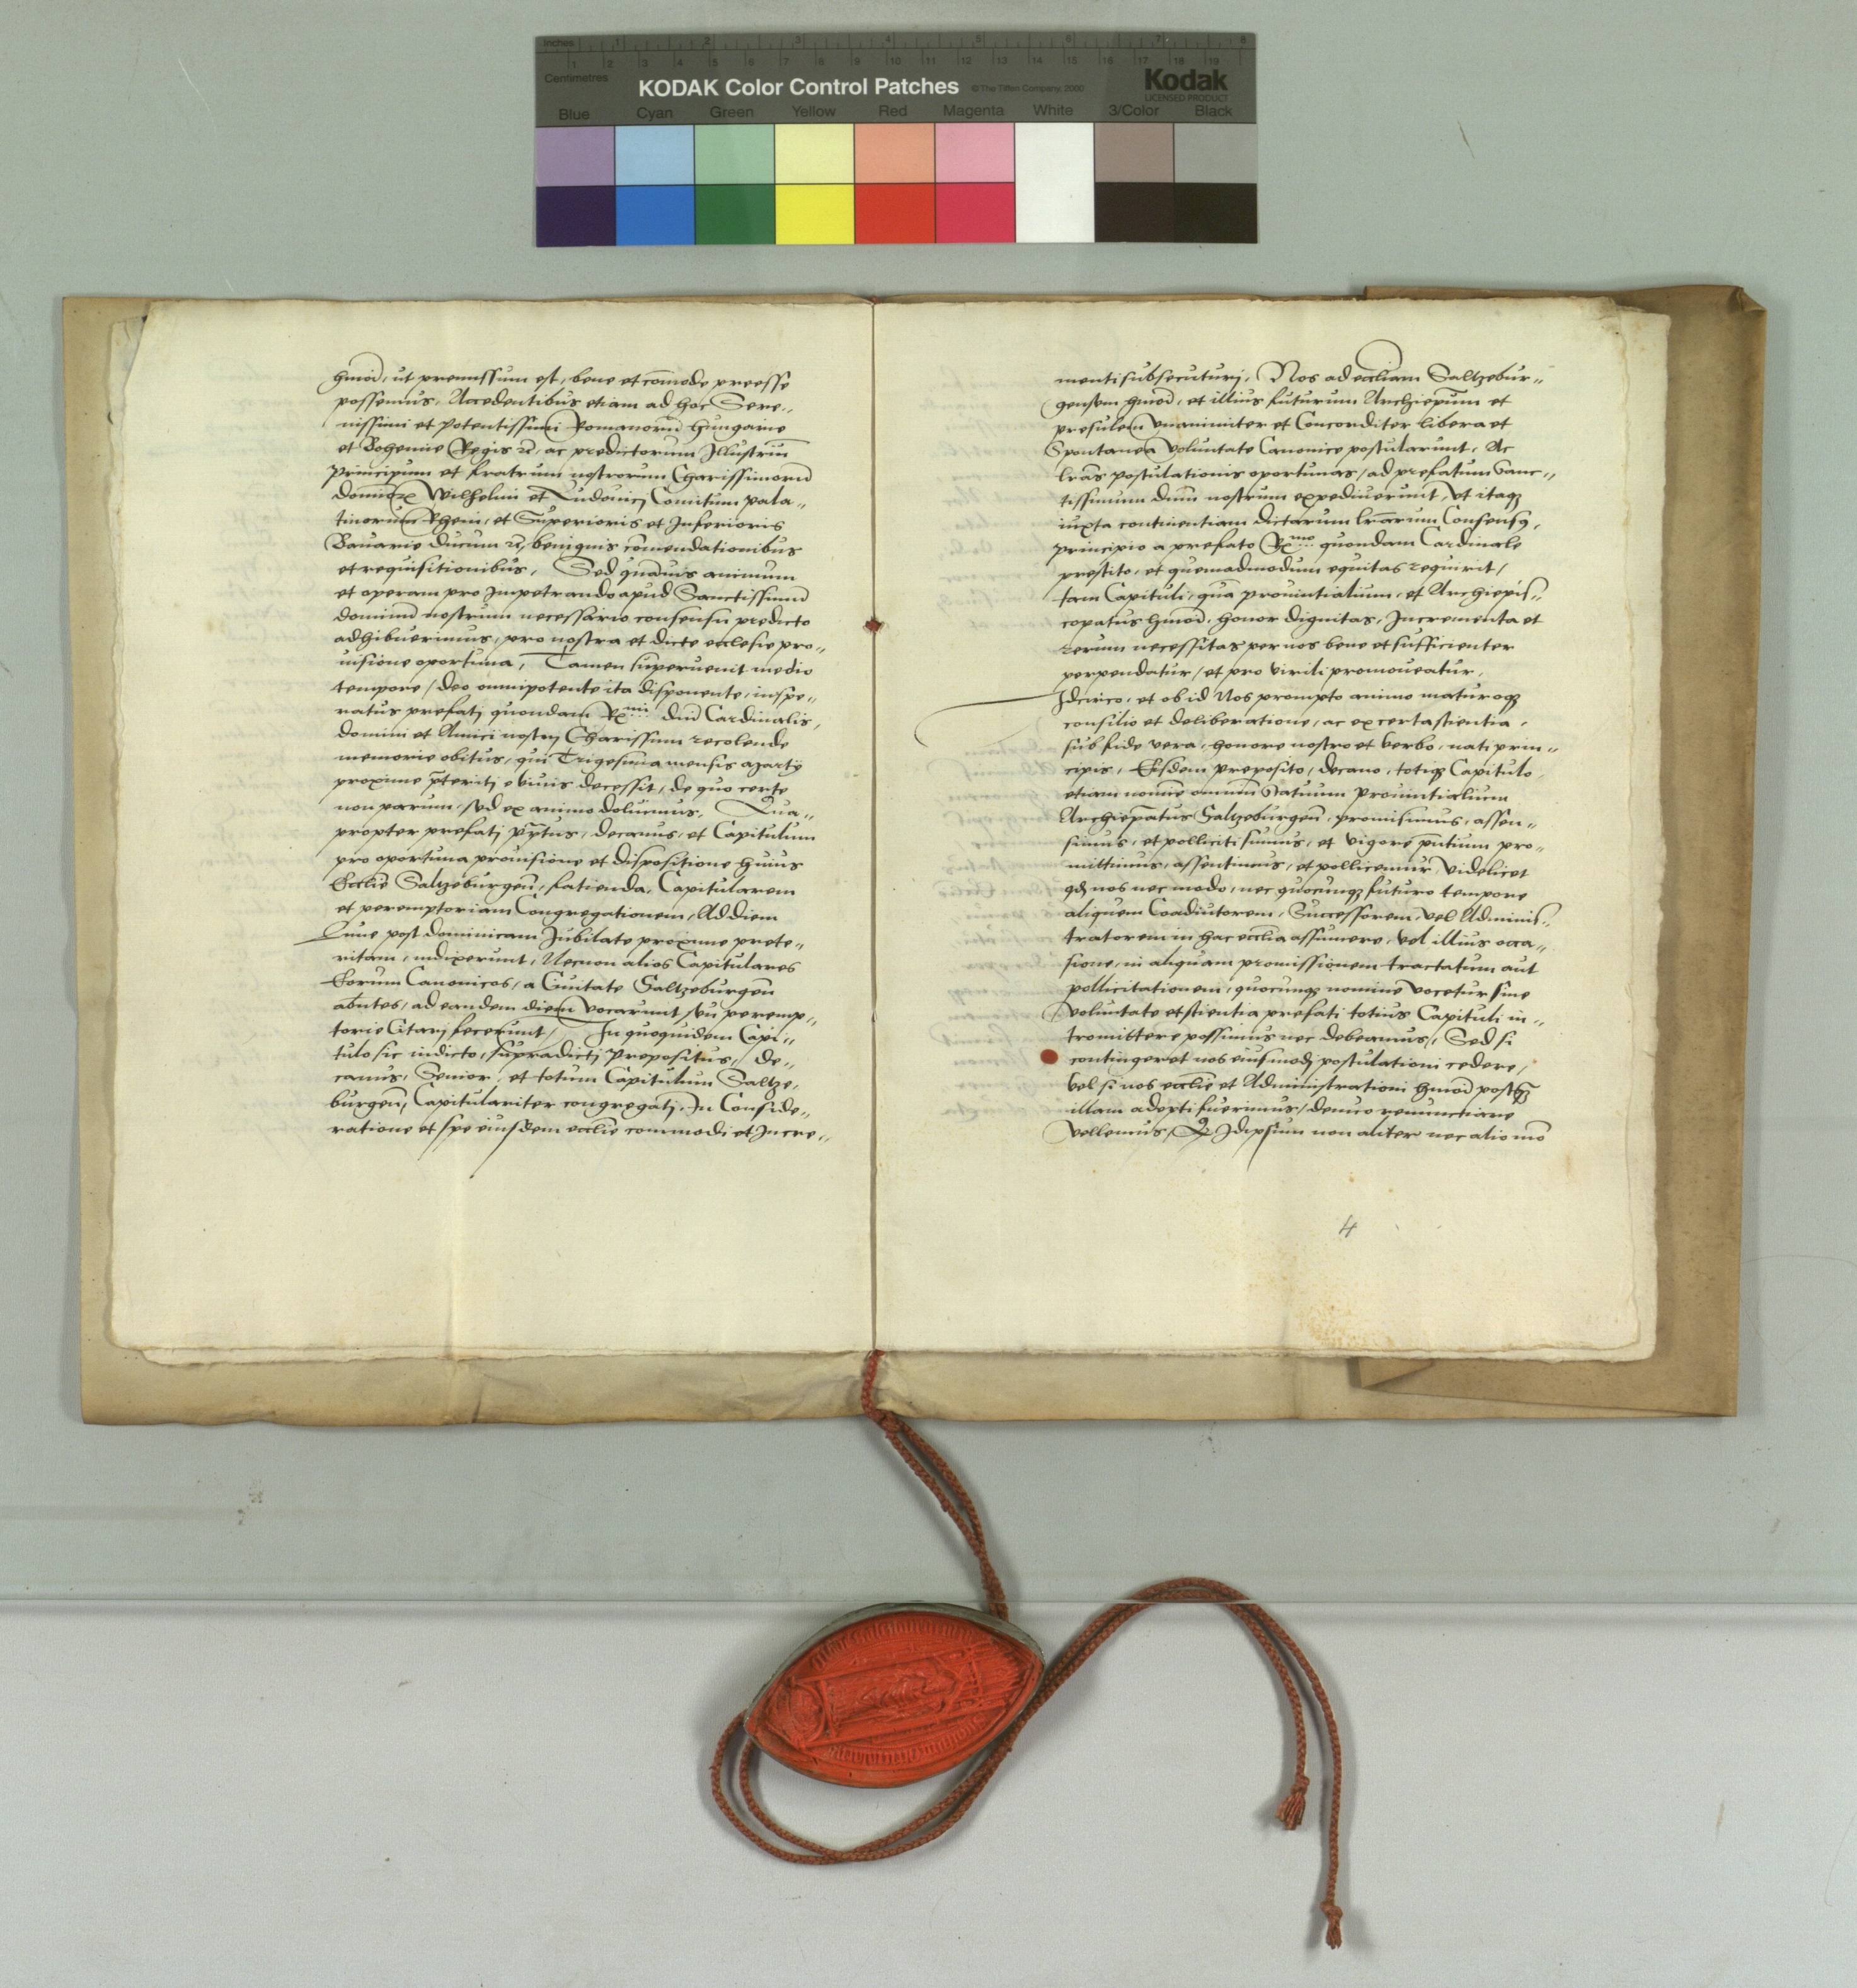 Inches 1 2 3 4 5 6 7 8
Centimetres 1 2 3 4 5 6 7 8 9 10 11 12 13 14 15 16 17 18 19
KODAK Color Control Patches © The Tiffen Company, 2000 Kodak
LICENSED PRODUCT
Blue Cyan Green Yellow Red Magenta White 3/Color Black
hmoi, ut premissum est, bene et comode preesse
possemus, Accedentibus etiam ad hoc Sere„
nissimi et potentissimi Romanorum Hungarie
et Bohemie Regis ac predictorum Illustriũ
Principum et fratrum nostrorum Charissimorũ
Wilhelmi et Ludovici Comitum pala„
tinorum Rheni, et Superioris et Inferioris
Bauarie ducum benignis cõmendationibus
et requisitionibus, Sed quãuis animum
et operam pro Impetrando apud Sanctissimũ
dominũ nostrum necessario consensu predicto
adhibuerimus, pro nostra et dicte ecclesie pro„
uisione oportuna, Tamen superuenit medio
tempore, deo omnipotente ita disponente, inspe„
ratus prefatj quondam Rx^mi dnĩ Cardinalis,
domini et Amici nostri Charissimi recolende
memorie obitus, qui Trigesima mensis
proxime p̃teritj e viuis decessit, de quo certe
non parum, sed ex animo doluimus, Qua„
propter prefatj decanus, et Capitulum
pro oportuna prouisione et dispositione huius
Ecclie Saltzeburgeñ, fatienda, Capitularem
et peremptoriam Congregationem, Ad diem
Lune post dominicam Jubilate proxime prete„
ritam, indixerunt, Necnon alios Capitulares
Eorum Canonicos, a Ciuitate Saltzeburgeñ
abñtes, ad eandem diem vocarunt seu peremp„
torie Citarj fecerunt, In quoquidem Capi„
tulo sic indicto, supradictj Prepositus, de„
canus, Senior, et totum Capitulum Saltze„
burgeñ, Capitulariter congregatj, In Conside„
ratione et spe eiusdem ecclie commodi et Incre„
menti subsecuturj, Nos ad eccliam Saltzebur„
gensem hmoi, et illius futurum Archiepum et
presulem vnanimiter et Concorditer libera et
Spontanea voluntate Canonice postularunt, Ac
lrãs postulationis oportunas, ad prefatum Sanc„
tissimum dnũm nostrum expediuerunt, Vt itaq3
iuxta continentiam dictarum lrarum Consensꝯ,
principio a prefato Rx^mo quondam Cardinale
prestito, et quemadmodum equitas requirit,
tam Capituli, quã prouintialium, et Archiepis„
copatus hmoi, honor dignitas, Incrementa et
rerum necessitas per nos bene et sufficienter
perpendatur, et pro virili promoueatur,
Idcirco, et ob id Nos prompto animo maturoq3
consilio et deliberatione, ac ex certa stientia,
sub fide vera, honore nostro et verbo, nati prin„
cipis, Eisdem preposito, decano, totiq3 Capitulo,
etiam nomĩe omnium Statuum Prouintialium
Archiepatus Saltzeburgeñ, promisimus, assen„
simus, et polliciti sumus, et vigore pñtium pro„
mittimus, assentimus, et pollicemur, videlicet
qd nos nec modo, nec quocunq3 futuro tempore
aliquem Coadiutorem, Successorem, vel Adminis„
tratorem in hac ecclia assumere, vel illius occa„
sione, in aliquam promissionem tractatum aut
pollicitationem, quocunq3 nomine vocetur sine
voluntate et stientia prefati totius Capituli in„
tromittere possimus nec debeamus, Sed si
contingeret nos eiusmodj postulationi cedere,
vel si nos ecclie et Administrationi hmoi postq̃3
illam adepti fuerimus, denuo renunctiare
vellemus, Q Idipsum non aliter nec alio mõ
4